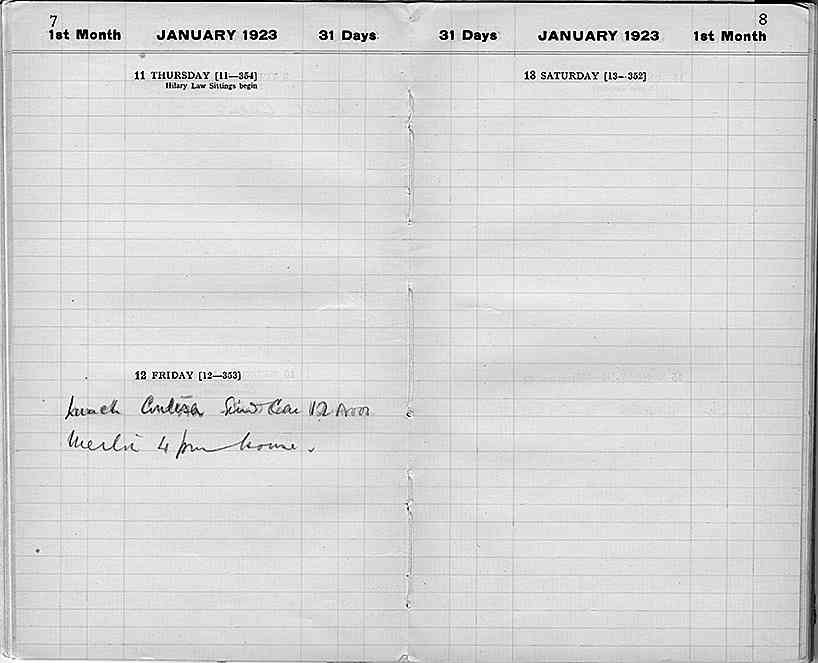 7
1st Month JANUARY 1923 31 Days
11 THURSDAY [11—354]
Hilary Law Sittings begin
12 FRIDAY [12—353]
Lunch Car 12 noon
4 pm home.
8
31 Days JANUARY 1923 1st Month
13 SATURDAY [13—352]